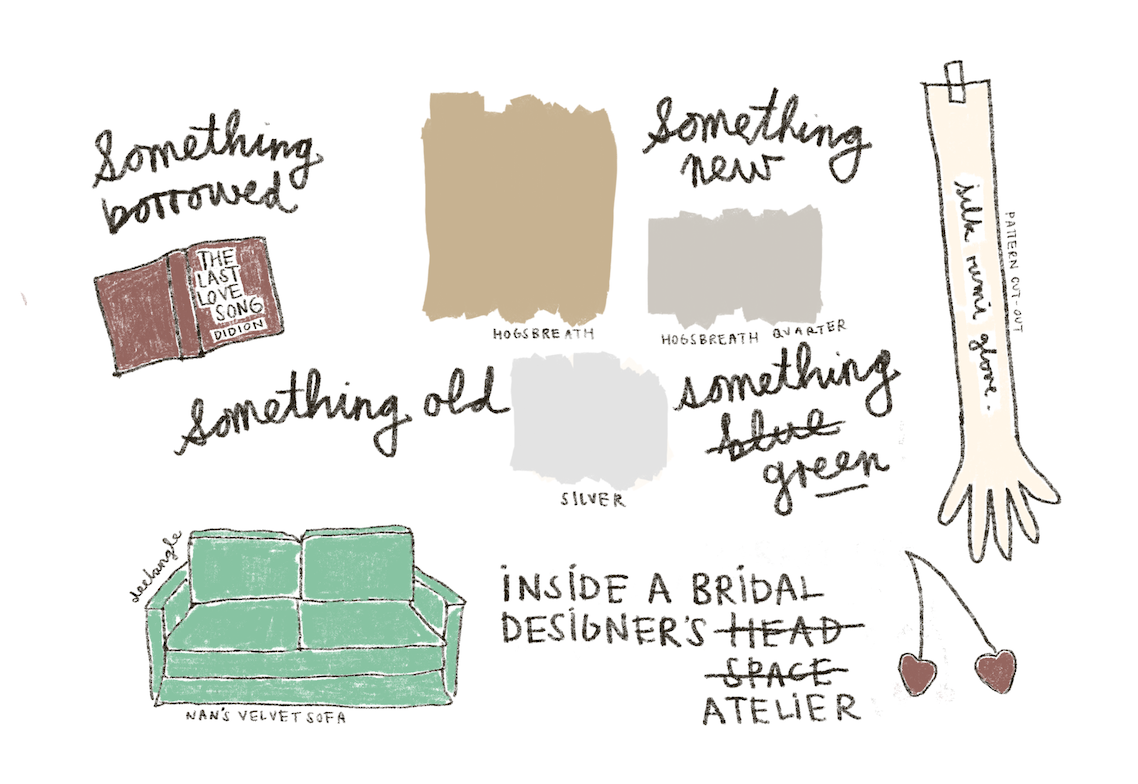 Something
borrowed
THE
LAST
LOVE
SONG
DIDION
HOGSBREATH
Something
new
HOGSBREATH QUARTER
silk rumi glove.
PATTERN CUT-OUT
Something old
SILVER
something
blue
green
NAN'S VELVET SOFA
INSIDE A BRIDAL
DESIGNER'S HEAD
SPACE
ATELIER